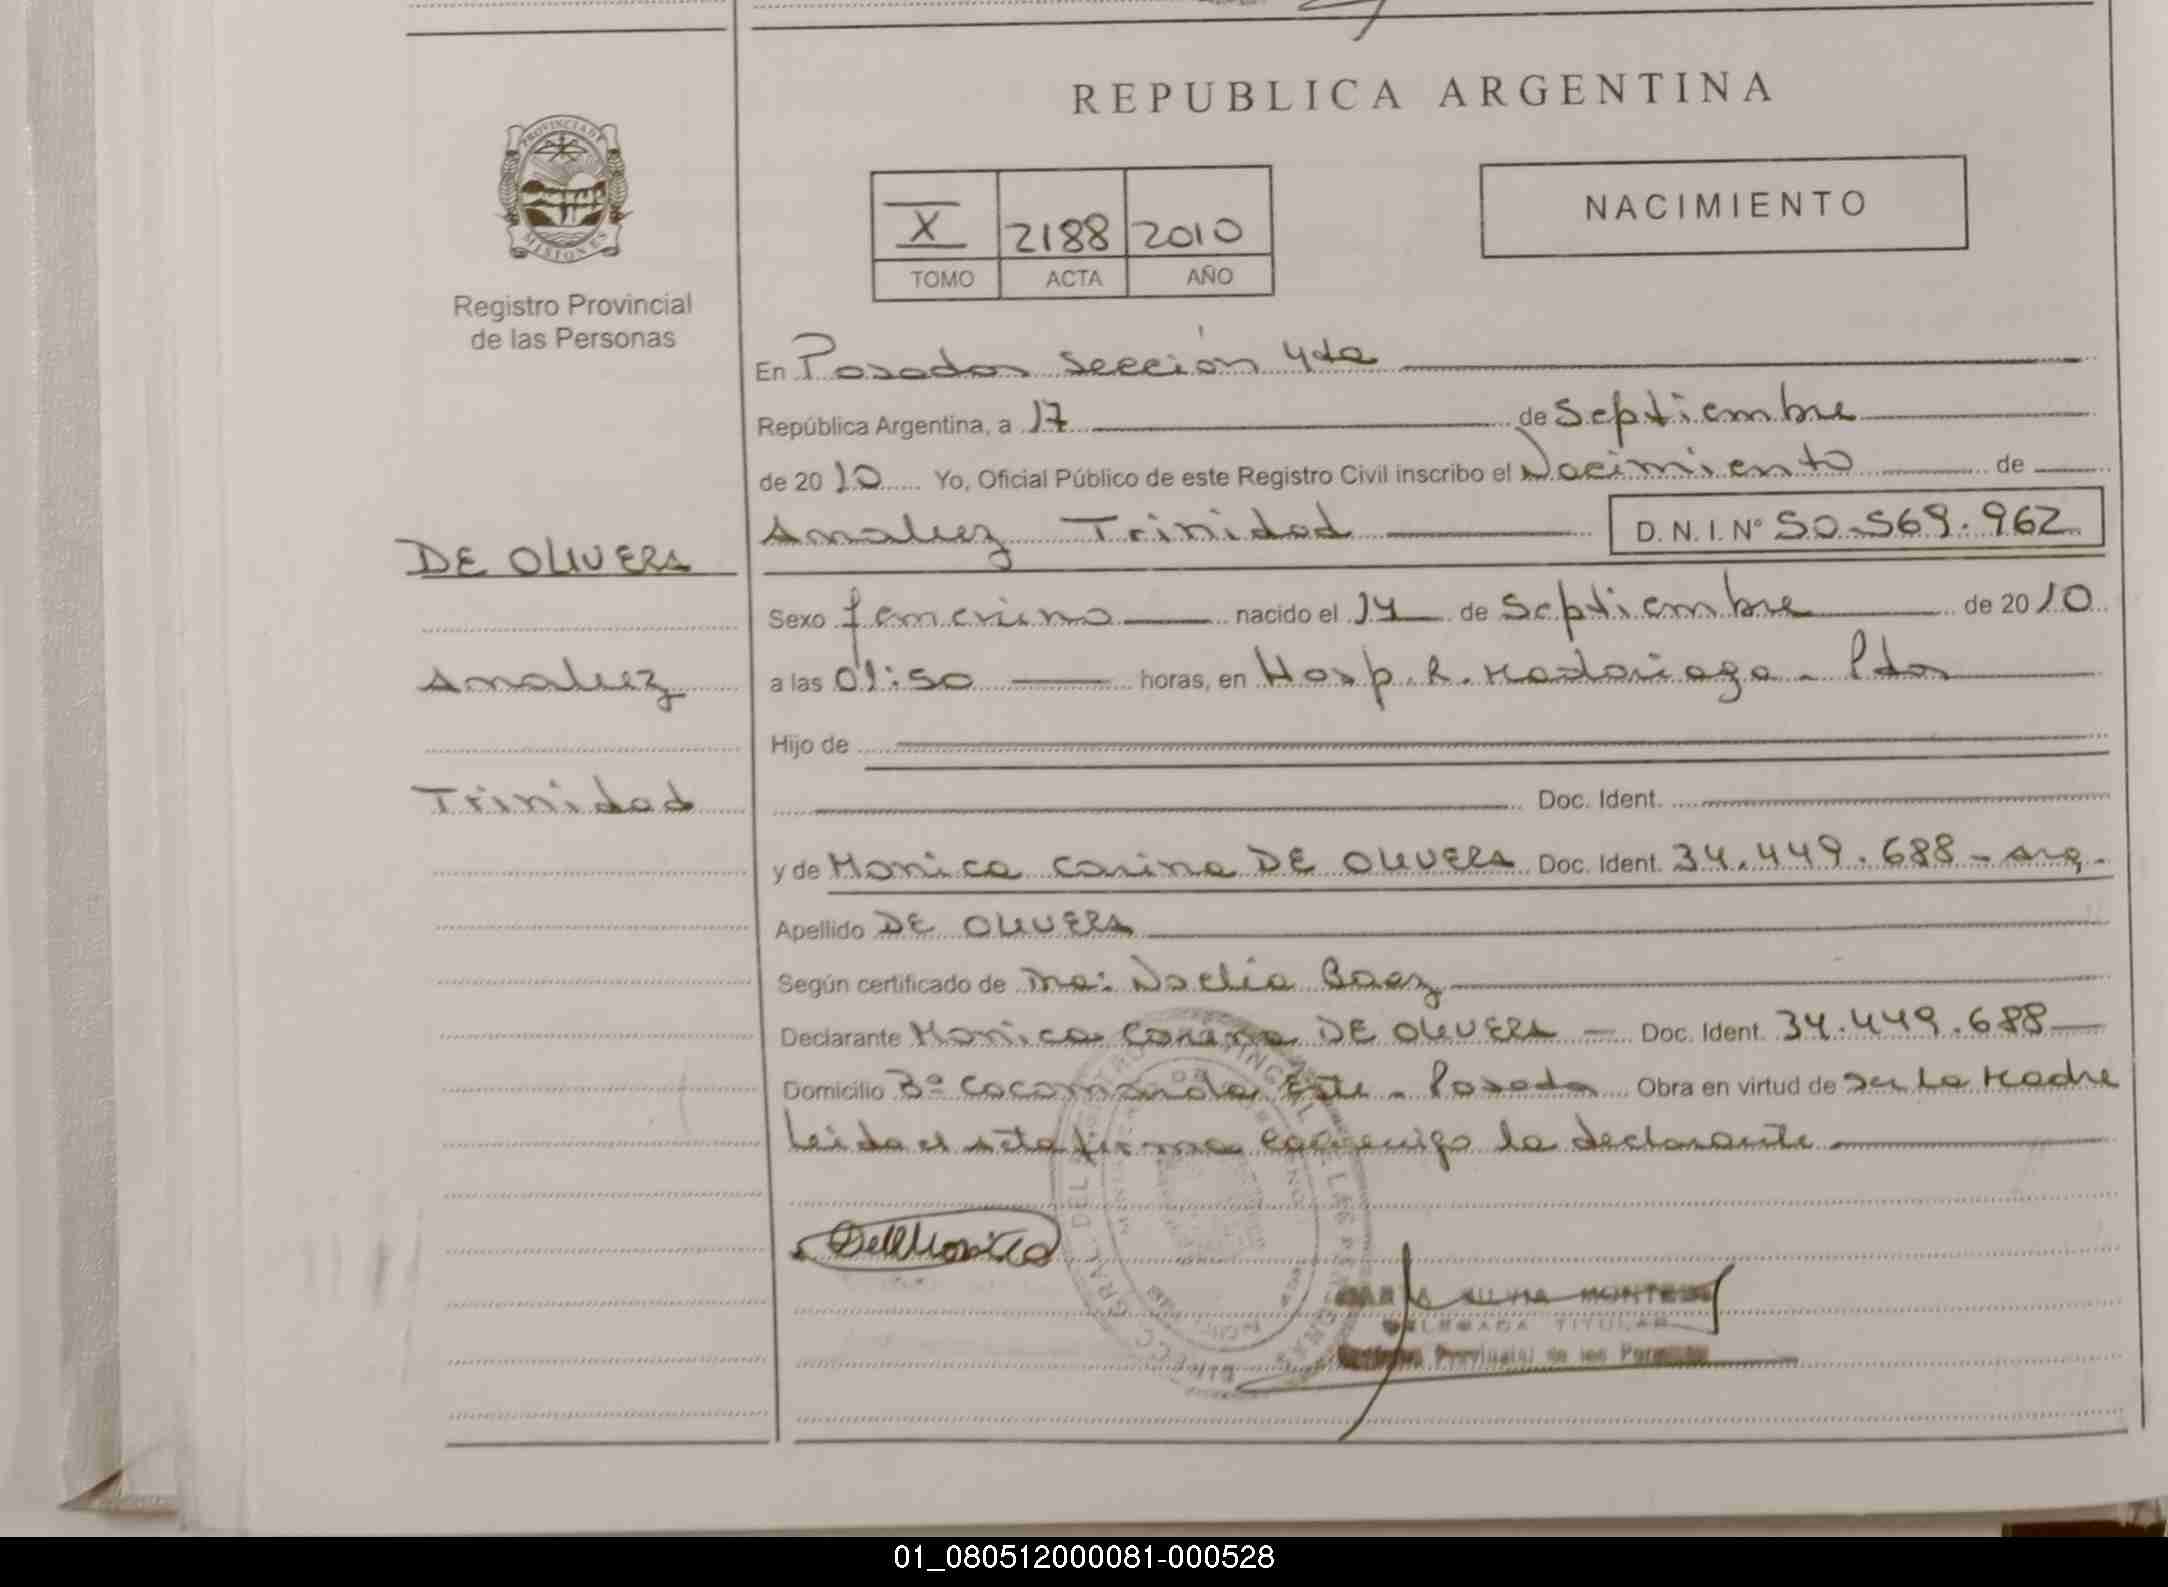 REPUBLICA ARGENTINA
PROVINCIA DE
MISIONES
Registro Provincial
de las Personas
X 2188 2010
TOMO ACTA AÑO
NACIMIENTO
En Posadas Sección 4ta
República Argentina, a 17 de Septiembre
de 2010 Yo, Oficial Público de este Registro Civil inscribo el Nacimiento de
Analuz Trinidad D.N.I. Nº 50.569.962
DE OLIVERA
Analuz
Trinidad
Sexo femenino nacido el 14 de Septiembre de 2010
a las 01:50 horas, en Hosp. R. Madariaga - Pdas
Hijo de
Doc. Ident.
y de Monica Carina DE OLIVERA Doc. Ident. 34.449.688 - Arg.
Apellido DE OLIVERA
Según certificado de Dra: Noelia Baez
Declarante Monica Carina DE OLIVERA Doc. Ident. 34.449.688
Domicilio Bº Cocomarola Este - Posadas Obra en virtud de ser La Madre
Leida el acta firma conmigo la declarante
MARIA SILVIA MONTE
DELEGADA TITULAR
Registro Provincial de las Personas
01_080512000081-000528